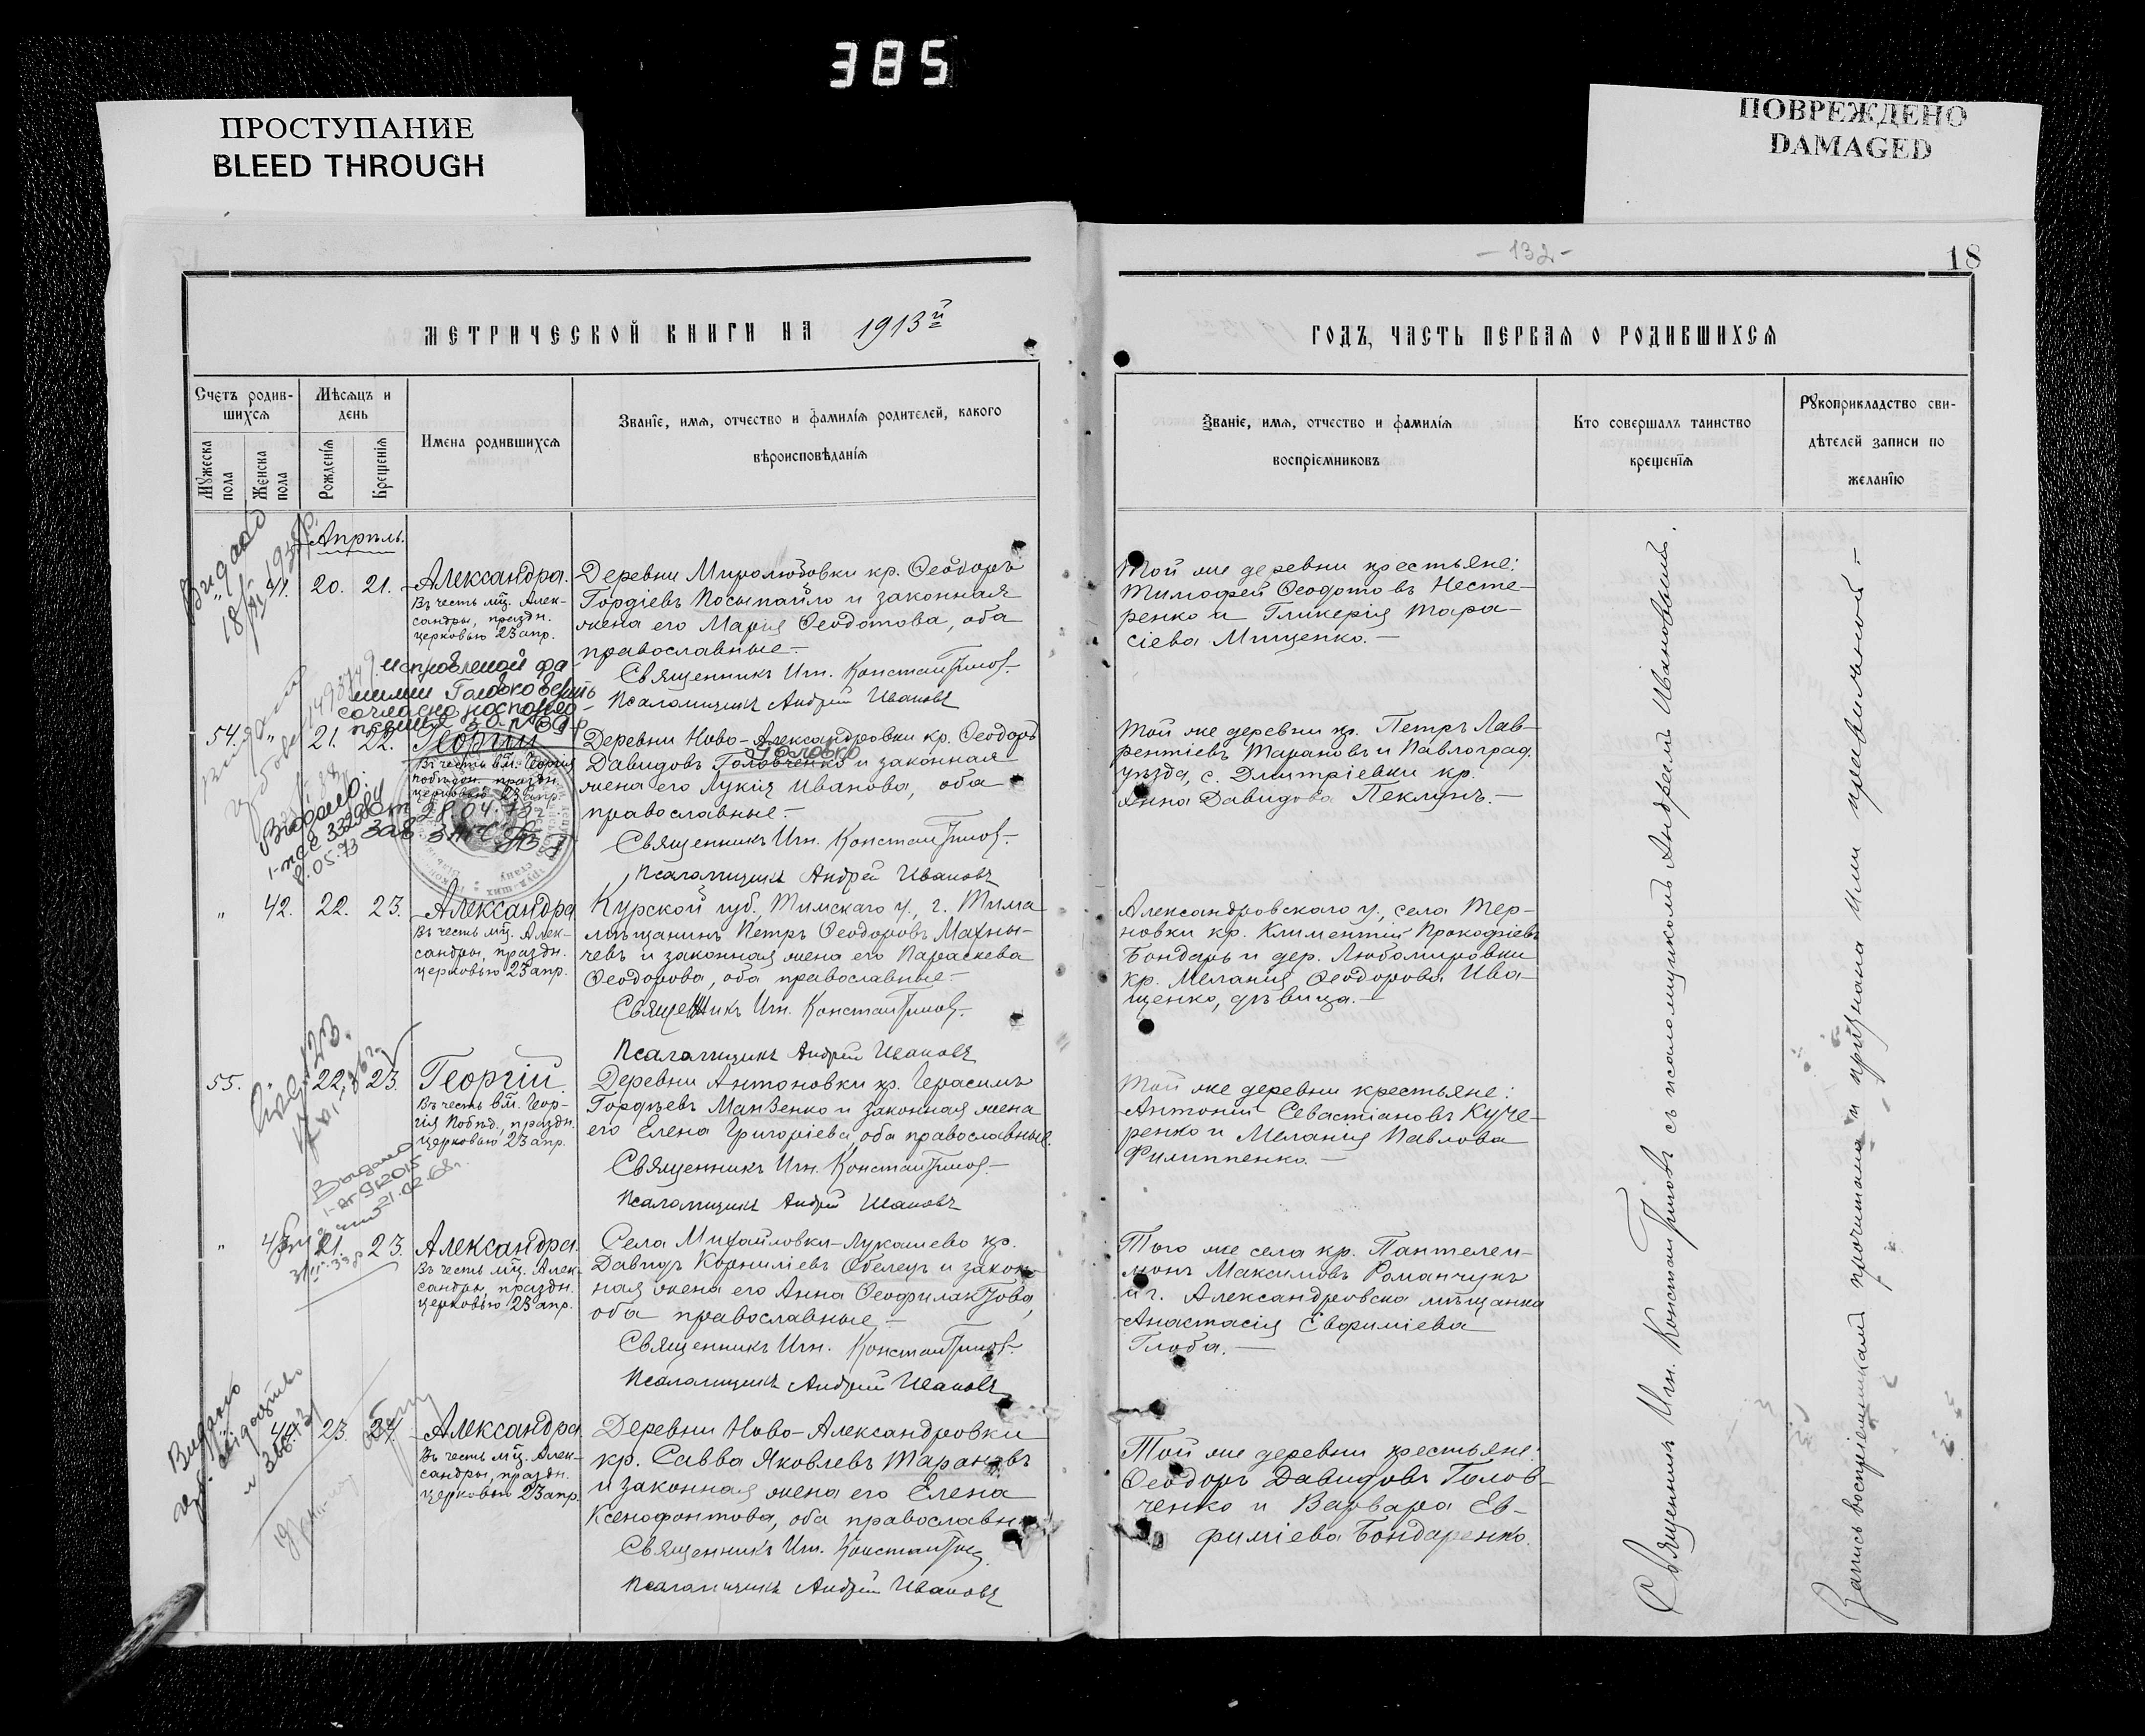 385
ПРОСТУПАНИЕ
BLEED THROUGH
ПОВРЕЖДЕНО
DAMAGED
— 132 —
18
МЕТРИЧЕСКОЙ КНИГИ НА 1913й
ГОДЪ, ЧАСТЬ ПЕРВАЯ О РОДИВШИХСЯ
Счетъ родив-
шихся
Мужеска пола
Женска пола
Мѣсяцъ и
день
Рожденія
Крещенія
Имена родившихся
Званіе, имя, отчество и фамилія родителей, какого
вѣроисповѣданія
Званіе, имя, отчество и фамилія
воспріемниковъ
Кто совершалъ таинство
крещенія
Рукоприкладство сви-
дѣтелей записи по
желанію
Апрѣль.
" 41. 20. 21. Александра.
Въ честь мц. Алек-
сандры, праздн.
церковью 23 апр.
Деревни Миролюбовки кр. Ѳеодоръ
Гордіевъ Посыпайло и законная
жена его Марія Ѳеодотова, оба
православные.—
Священникъ Игн. Константиновъ.
Псаломщикъ Андрей Ивановъ
Той же деревни крестьяне:
Тимоѳей Ѳеодотовъ Несте-
ренко и Гликерія Тара-
сіева Мищенко.—
54. " 21. 22. Георгій
Въ честь вм. Георгія
побѣдон. праздн.
церковью 23 апр.
Деревни Ново-Александровки кр. Ѳеодоръ
Головко
Давидовъ Головченко и законная
жена его Лукія Иванова, оба
православные.—
Священникъ Игн. Константиновъ.
Псаломщикъ Андрей Ивановъ
Той же деревни кр. Петръ Лав-
рентіевъ Тарановъ и Павлоград.
уѣзда, с. Дмитріевки кр.
Анна Давидова Пеклунъ.—
" 42. 22. 23. Александра
Въ честь мц. Алек-
сандры, праздн.
церковью 23 апр.
Курской губ., Тимскаго у., г. Тима
мѣщанинъ Петръ Ѳеодоровъ Махны-
чевъ и законная жена его Параскева
Ѳеодорова, оба православные.—
Священникъ Игн. Константиновъ.
Псаломщикъ Андрей Ивановъ
Александровскаго у., села Тер-
новки кр. Климентій Прокофіевъ
Бондарь и дер. Любомировки
кр. Меланія Ѳеодорова Ива-
щенко, дѣвица.—
55. " 22. 23. Георгій
Въ честь вм. Геор-
гія Побѣд., праздн.
церковью 23 апр.
Деревни Антоновки кр. Герасимъ
Гордѣевъ Манзенко и законная жена
его Елена Григоріева, оба православные.
Священникъ Игн. Константиновъ.—
Псаломщикъ Андрей Ивановъ
Той же деревни крестьяне:
Антоній Севастіановъ Куче-
ренко и Меланія Павлова
Филиппенко.—
" 43. 21. 23. Александра.
Въ честь мц. Алек-
сандры, праздн.
церковью 23 апр.
Села Михайловки-Лукашево кр.
Давидъ Корниліевъ Обелецъ и закон-
ная жена его Анна Ѳеофилактова,
оба православные.—
Священникъ Игн. Константиновъ.
Псаломщикъ Андрей Ивановъ
Того же села кр. Пантелеи-
монъ Максимовъ Романчукъ
и г. Александровска мѣщанка
Анастасія Евфиміева
Глоба.—
" 44. 23. 24. Александра
Въ честь мц. Алек-
сандры, праздн.
церковью 23 апр.
Деревни Ново-Александровки
кр. Савва Яковлевъ Тарановъ
и законная жена его Елена
Ксенофонтова, оба православн
Священникъ Игн. Константинов
Псаломщикъ Андрей Ивановъ
Той же деревни крестьяне:
Ѳеодоръ Давидовъ Голов-
ченко и Варвара Ев-
фиміева Бондаренко.
Священникъ Игн. Константиновъ съ псаломщикомъ Андреемъ Ивановымъ.
Запись воспріемниками прочитана и признана ими правильной.—